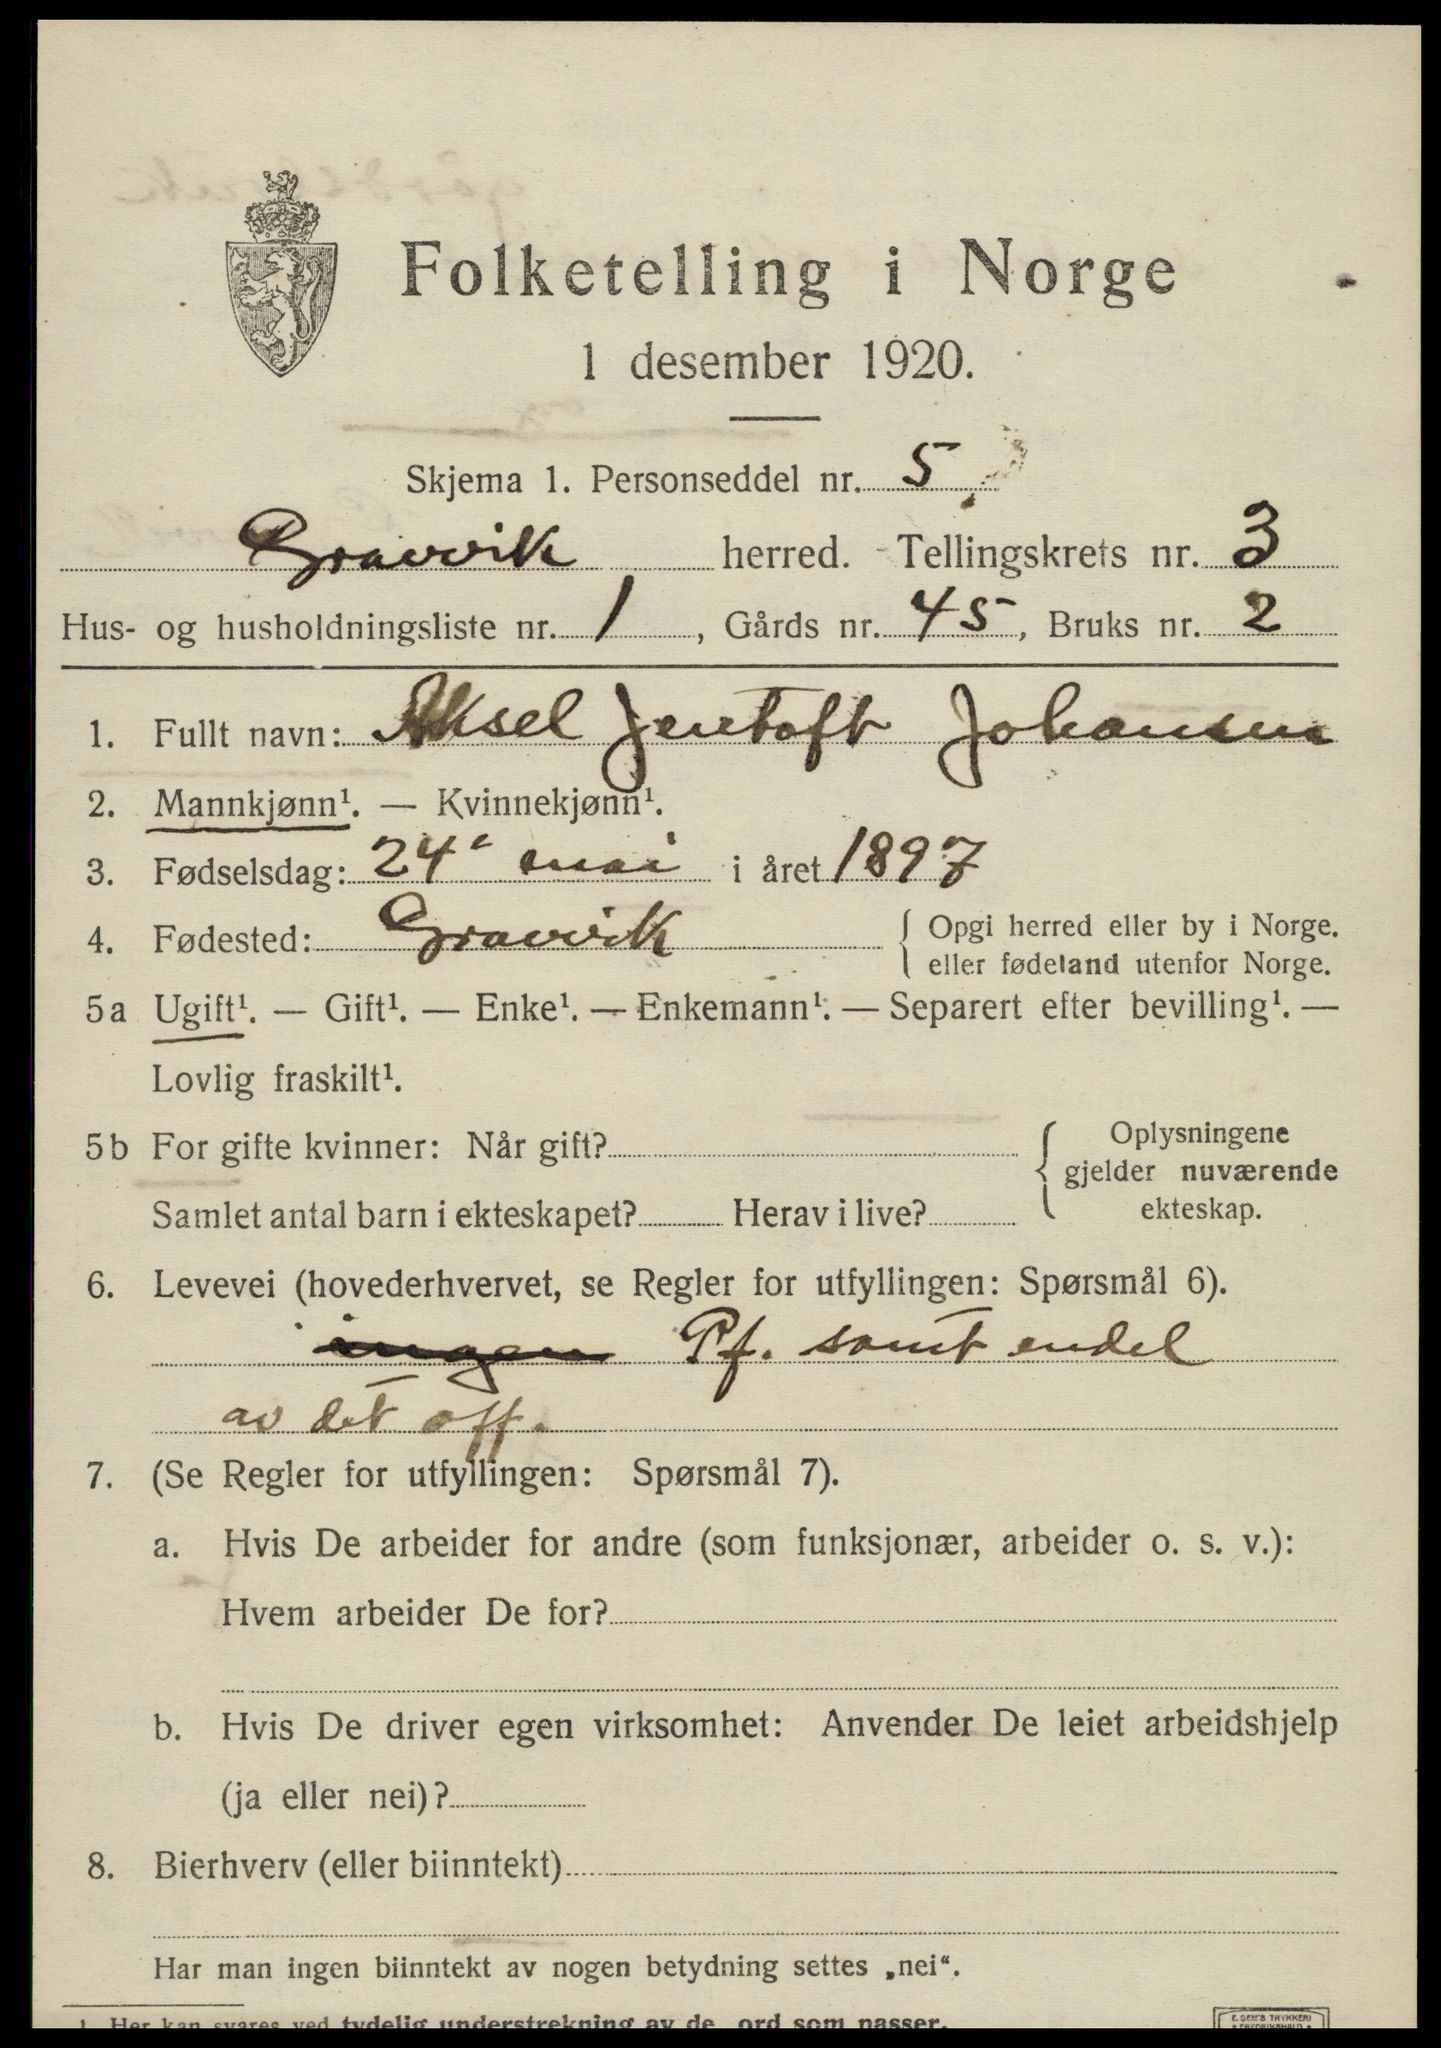 Folketelling i Norge
1 desember 1920.
Skjema 1. Personseddel nr. 5
Gravvik herred. Tellingskrets nr. 3
Hus- og husholdningsliste nr. 1, Gårds nr. 45, Bruks nr. 2
1. Fullt navn: Aksel Jentoft Johansen
2. Mannkjønn¹. — Kvinnekjønn¹.
3. Fødselsdag: 24 mai i året 1897
4. Fødested: Gravvik { Opgi herred eller by i Norge.
eller fødeland utenfor Norge.
5a Ugift¹. — Gift¹. — Enke¹. — Enkemann¹. — Separert efter bevilling¹. —
Lovlig fraskilt¹.
5b For gifte kvinner: Når gift? { Oplysningene
gjelder nuværende
Samlet antal barn i ekteskapet? Herav i live? ekteskap.
6. Levevei (hovederhvervet, se Regler for utfyllingen: Spørsmål 6).
ingen Pf. samt endel
av det off.
7. (Se Regler for utfyllingen: Spørsmål 7).
a. Hvis De arbeider for andre (som funksjonær, arbeider o. s. v.):
Hvem arbeider De for?
b. Hvis De driver egen virksomhet: Anvender De leiet arbeidshjelp
(ja eller nei)?
8. Bierhverv (eller biinntekt)
Har man ingen biinntekt av nogen betydning settes „nei“.
1 Her kan svares ved tydelig understrekning av de ord som passer.
E. SEM'S TRYKKERI
FREDRIKSHALD